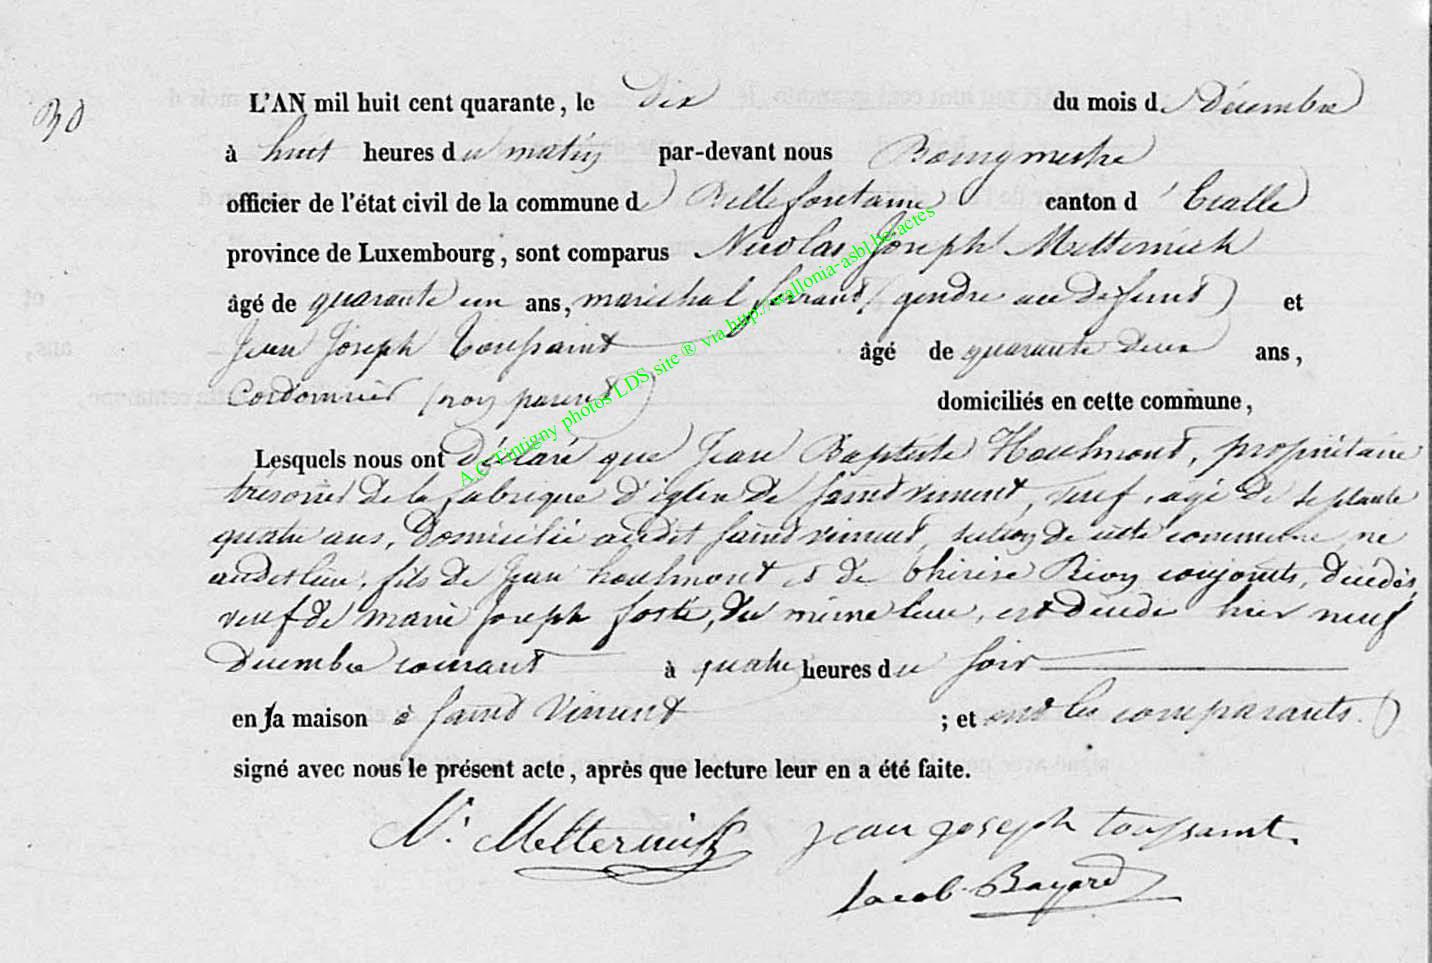 30
L'AN mil huit cent quarante, le dix du mois de Décembre
à huit heures du matin par-devant nous Bourgmestre
officier de l'état civil de la commune de Bellefontaine canton d'Etalle
province de Luxembourg, sont comparus Nicolas Joseph Metternich
âgé de quarante un ans, maréchal ferrant (gendre au defunt) et
Jean Joseph Toussaint âgé de quarante deux ans,
Cordonnier (non parent) domiciliés en cette commune,
Lesquels nous ont déclaré que Jean Baptiste Houlmont, propriétaire
trésorier de la fabrique d'église de Saint vincent, veuf, agé de septante
quatre ans, domicilié audit Saint vincent, section de cette commune, né
audit lieu, fils de Jean houlmont et de thérèse Rion conjoints, décédés,
veuf de marie Joseph fosté, du même lieu, est décédé hier neuf
Decembre courant à quatre heures du soir
en sa maison à Saint Vincent ; et ont les comparants
signé avec nous le présent acte, après que lecture leur en a été faite.
N. Metternich jean joseph toussaint
Jacob-Bayard
A.C Tintigny photos LDS site ® via http://wallonia-asbl.be/actes